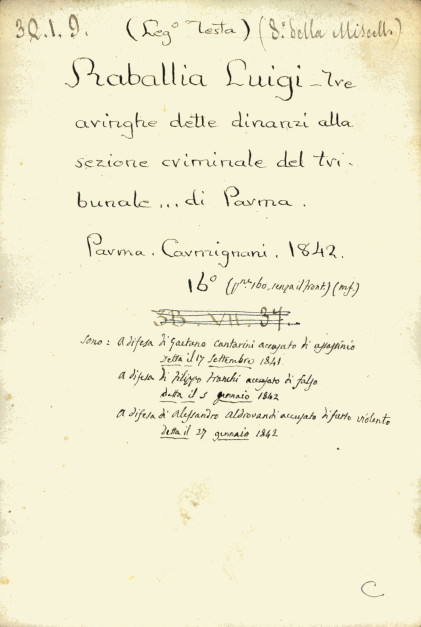 3Q.1.9. (Leg.º Testa) (8.º della Miscell.)
Raballia Luigi - Tre
aringhe dette dinanzi alla
sezione criminale del tri-
bunale ... di Parma.
Parma. Carmignani. 1842.
16º (pp. 160, senza il front.) (mf.)
3B. VII. 37.
sono: A difesa di Gaetano Cantarini accusato di assassinio
detta il 17 settembre 1841
A difesa di Filippo Franchi accusato di falso
detta il 5 gennaio 1842
A difesa di Alessandro Aldrovandi accusato di furto violento
detta il 27 gennaio 1842
C